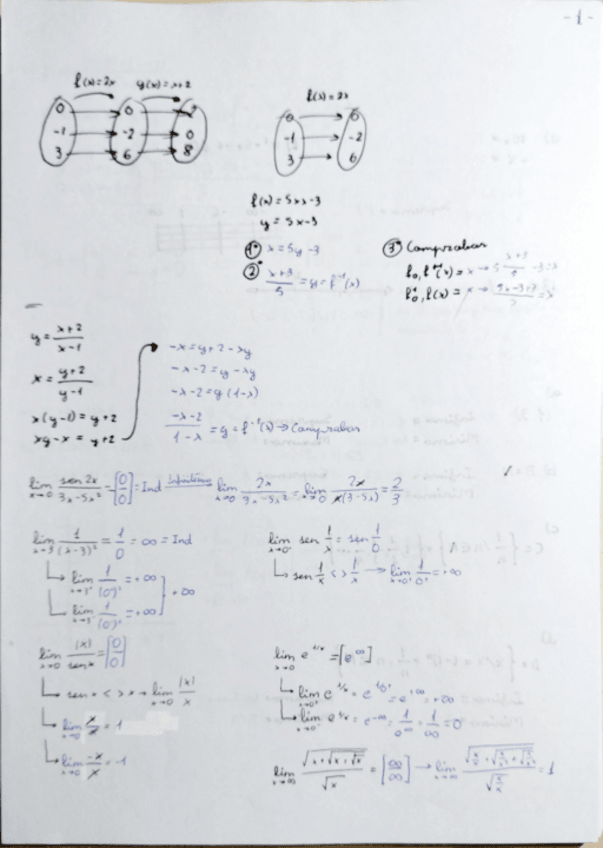 -1-
f(x)=2x g(x)=x+2
0 0 2
-1 -2 0
3 6 8
f(x)=2x
0 0
-1 -2
3 6
f(x)=5x-3
y=5x-3
1º x=5y-3
2º x+3/5 = y = f⁻¹(x)
3º Comprobar
y = x+2/x-1
x = y+2/y-1
x(y-1)=y+2
xy-x=y+2
-x=y+2-xy
-x-2=y-xy
-x-2=y(1-x)
-x-2/1-x = y = f⁻¹(x) → Comprobar
lim x→0 sen 2x/3x-5x² = [0/0] = Ind lim x→0 2x/3x-5x² = lim x→0 2x/x(3-5x) = 2/3
lim x→3 1/(x-3)² = 1/0 = ∞ = Ind
lim x→3⁻ 1/(0⁻)² = +∞
lim x→3⁺ 1/(0⁺)² = +∞
+∞
lim x→0⁺ sen 1/x = sen 1/0
sen 1/x <> 1/x → lim x→0⁺ 1/0⁺ = +∞
lim x→0 |x|/sen x = [0/0]
sen x <> x → lim x→0 |x|/x
lim x→0 x/x = 1
lim x→0 -x/x = -1
lim x→0 e^1/x = [e^∞]
lim x→0⁺ e^1/x = e^1/0⁺ = e^+∞ = +∞
lim x→0⁻ e^1/x = e^-∞ = 1/e^∞ = 1/∞ = 0
lim x→∞ √(x+√(x+√x))/√x = [∞/∞] → lim x→∞ = 1